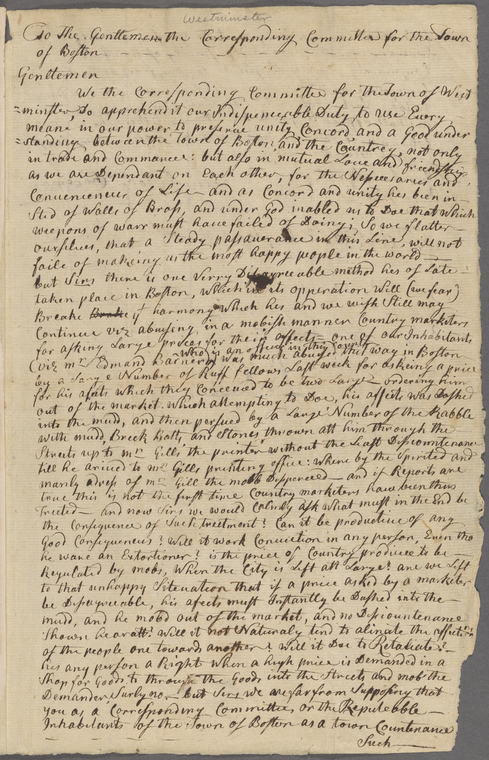 Westminster
To The Gentlemen the Corresponding Committee for the Town
of Boston
Gentlemen
We the Corresponding Committee for the Town of West
minster Do apprehend it our Indispencable Duty to use Every
meane in our power to preserve unity Concord and a Good under
=standing between the Town of Boston and the Countrey, not only
in trade and Commerce: but also in mutual Love and friendship
as we are Dependant on Each other, for the Nessecaries and
Conveniences of Life - and as Concord and unity hes bien in
Sted of Walls of Brass, and under God inabled us to Doe that Which
weepons of warr must have failed of Doing; So we flatter
ourselves, that a Steady passaverance in this Line, will not
faile of making us the most happy people in the world —
but Sirs there is one Verry Disagreeable method hes of Late
taken place in Boston, Which in its operation Will (we fear)
Breake Break yt harmony Which hes and we wish Still may
Continue viz abusing, in a mobish manner Country marketers
for asking Large prices for their affects — one of our Inhabitants
(viz mr Edmand Barnerd Who is an officer in this Town was much abused that way in Boston
by a Large Number of Ruff fellows Last week for asking a price
for his afects which they Conceved to be two Large — ordering him
out of the market. Which attempting to Doe, his affects was Dashed
into the mudd, and then persued by a Large Number of the Rabble
with mudd, Breek batts, and Stones thrown att him through the
Streets up to mr Gills the printer without the Least Discountenance
till he arived to mr Gills printing office: Where by the Spirited and
manly adress of mr Gill the mobb Dispereced — and if Reports are
true this is not the first time Country marketers have been thus
Treeted — and now Sirs we would Calmly ask What must in the End be
the Consequence of Such treetment? Can it be productive of any
Good Consequences? Will it work Conviction in any person, Even tho
he ware an Extortioner? is the price of Country produce to be
Regulated by mobs, When the City is Left att Large? are we Left
to that unhappy Sitenation that if a price asked by a marketer
be Disagreeable, his afects must Instantly be Dashed into the
mudd, and he mobd out of the market, and no Discountenance
Shown heratt? Will it not Naturaly tend to alinate the affections
of the people one toward another? Will it Doe to Retaliate? —
hes any person a Right When a high price is Demanded in a
Shop for Goods to through the Goods into the Streets and mob the
Demander, Surly no — but Sirs we are far from Supposing that
you as a Corresponding Committee, or the Reputebble
Inhabitants of the Town of Boston as a town Countenance
Such —